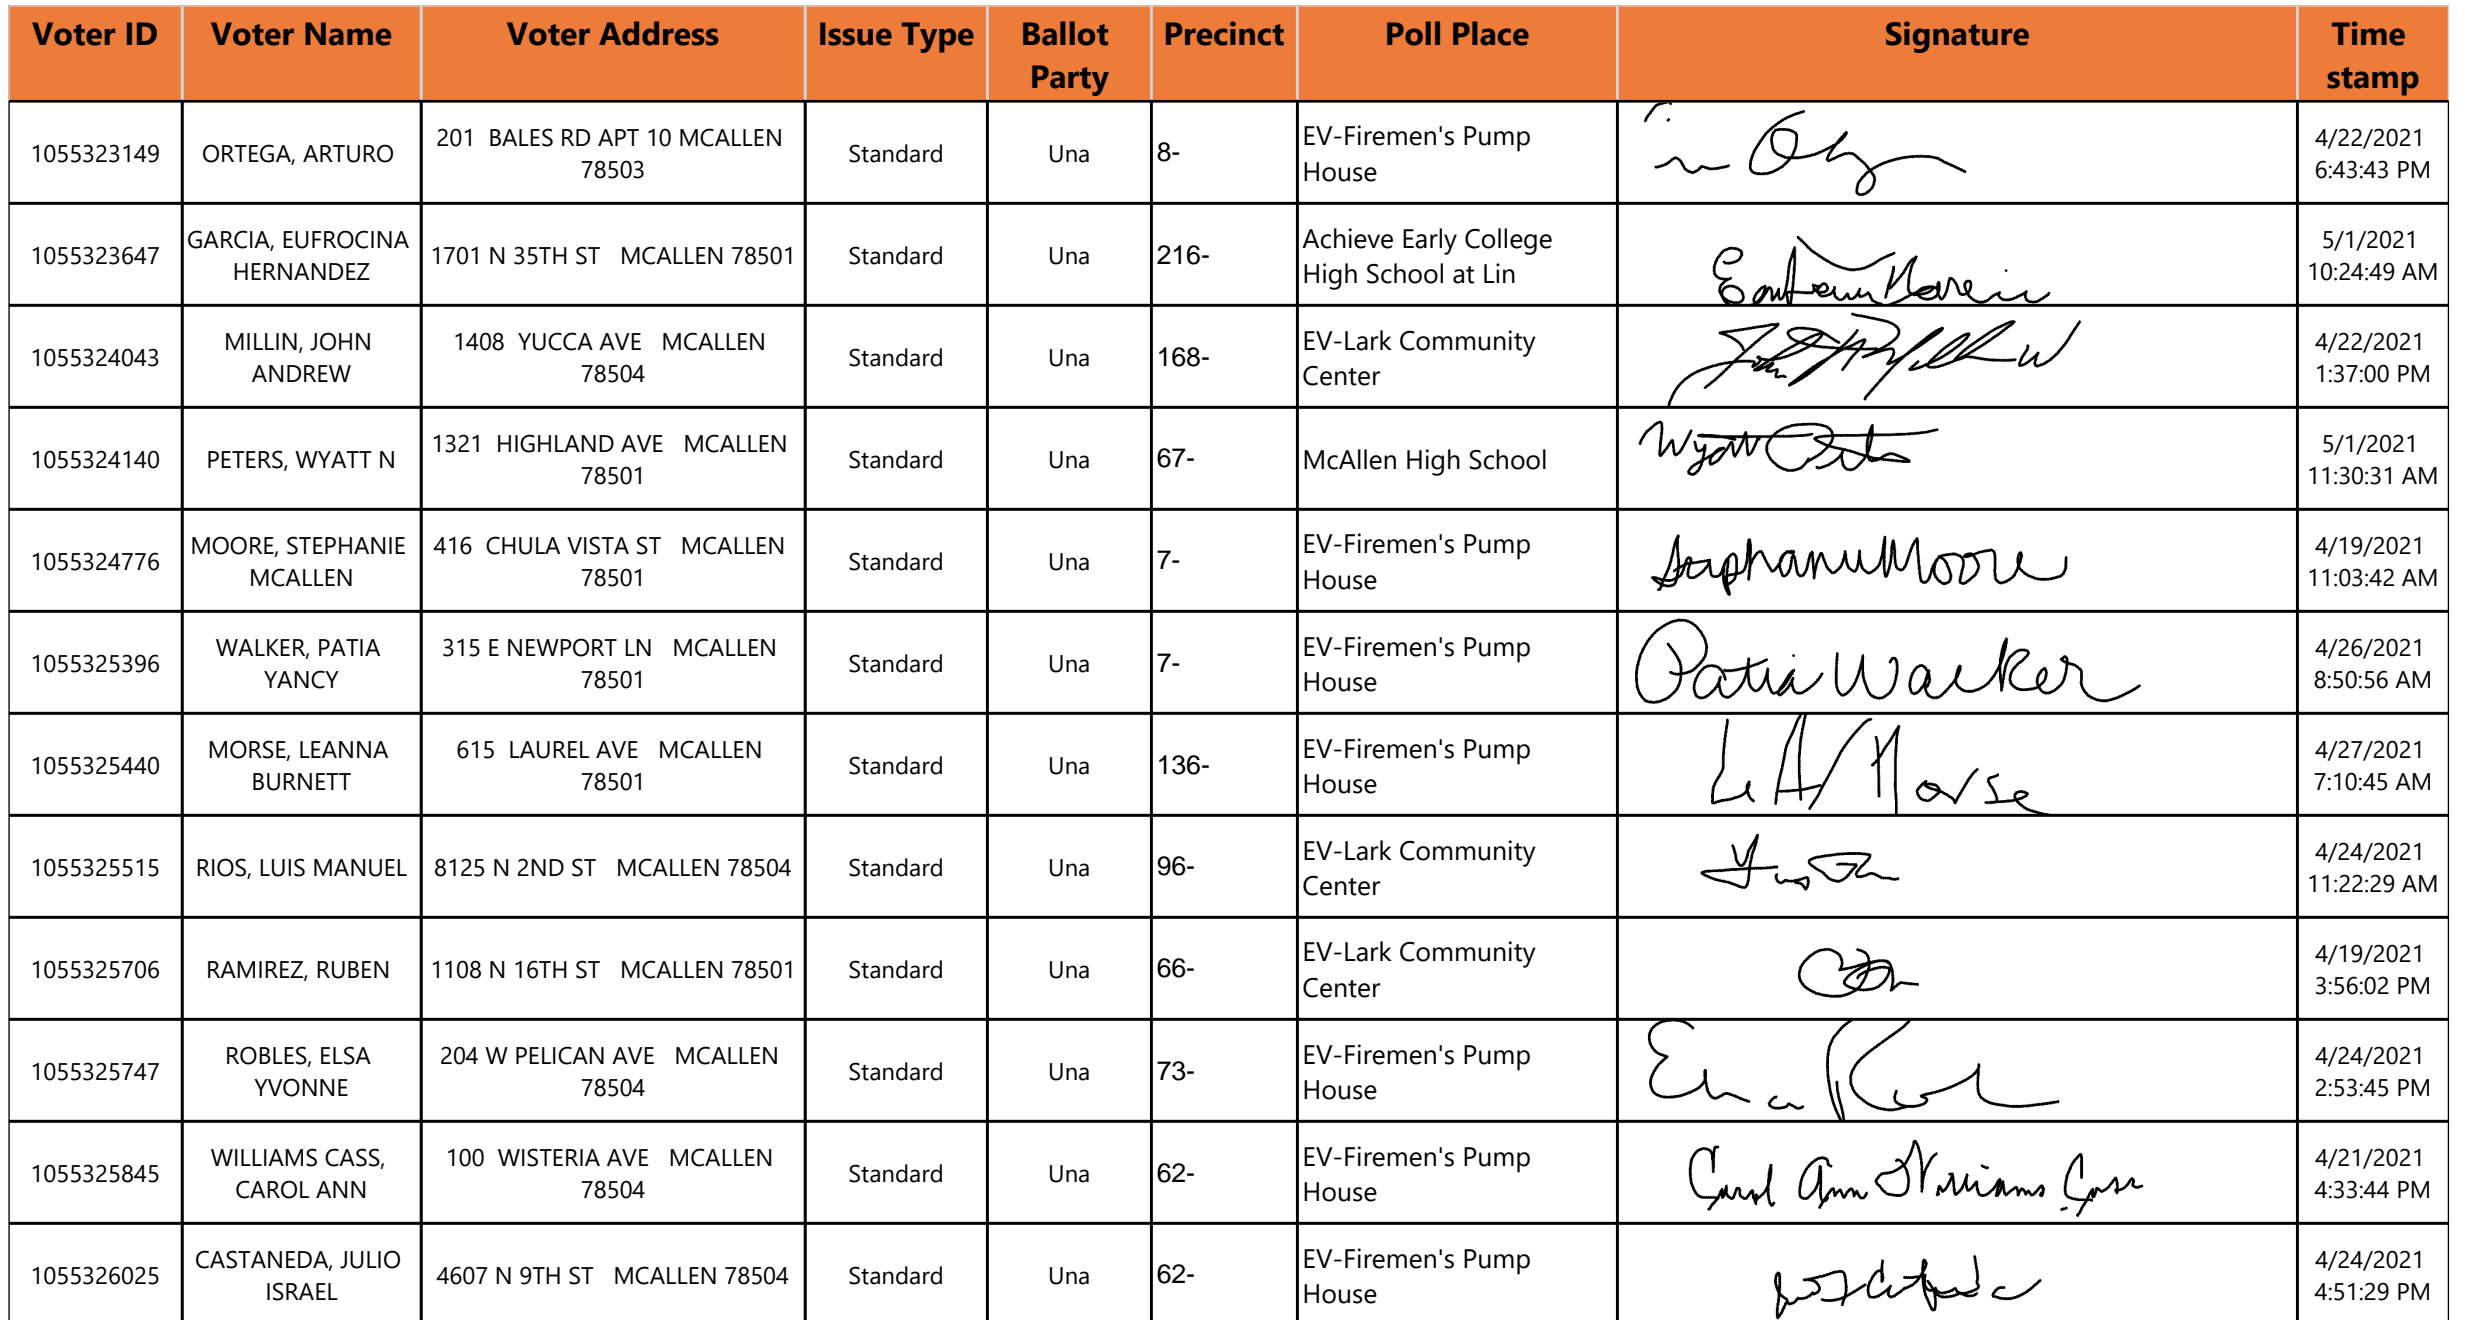 Voter ID Voter Name Voter Address Issue Type Ballot Party Precinct Poll Place Signature Time stamp
1055323149 ORTEGA, ARTURO 201 BALES RD APT 10 MCALLEN 78503 Standard Una 8- EV-Firemen's Pump House 4/22/2021 6:43:43 PM
1055323647 GARCIA, EUFROCINA HERNANDEZ 1701 N 35TH ST MCALLEN 78501 Standard Una 216- Achieve Early College High School at Lin 5/1/2021 10:24:49 AM
1055324043 MILLIN, JOHN ANDREW 1408 YUCCA AVE MCALLEN 78504 Standard Una 168- EV-Lark Community Center 4/22/2021 1:37:00 PM
1055324140 PETERS, WYATT N 1321 HIGHLAND AVE MCALLEN 78501 Standard Una 67- McAllen High School Wyatt 5/1/2021 11:30:31 AM
1055324776 MOORE, STEPHANIE MCALLEN 416 CHULA VISTA ST MCALLEN 78501 Standard Una 7- EV-Firemen's Pump House Stephanie Moore 4/19/2021 11:03:42 AM
1055325396 WALKER, PATIA YANCY 315 E NEWPORT LN MCALLEN 78501 Standard Una 7- EV-Firemen's Pump House Patia Walker 4/26/2021 8:50:56 AM
1055325440 MORSE, LEANNA BURNETT 615 LAUREL AVE MCALLEN 78501 Standard Una 136- EV-Firemen's Pump House Morse 4/27/2021 7:10:45 AM
1055325515 RIOS, LUIS MANUEL 8125 N 2ND ST MCALLEN 78504 Standard Una 96- EV-Lark Community Center 4/24/2021 11:22:29 AM
1055325706 RAMIREZ, RUBEN 1108 N 16TH ST MCALLEN 78501 Standard Una 66- EV-Lark Community Center 4/19/2021 3:56:02 PM
1055325747 ROBLES, ELSA YVONNE 204 W PELICAN AVE MCALLEN 78504 Standard Una 73- EV-Firemen's Pump House 4/24/2021 2:53:45 PM
1055325845 WILLIAMS CASS, CAROL ANN 100 WISTERIA AVE MCALLEN 78504 Standard Una 62- EV-Firemen's Pump House Carol Ann Williams Cass 4/21/2021 4:33:44 PM
1055326025 CASTANEDA, JULIO ISRAEL 4607 N 9TH ST MCALLEN 78504 Standard Una 62- EV-Firemen's Pump House 4/24/2021 4:51:29 PM